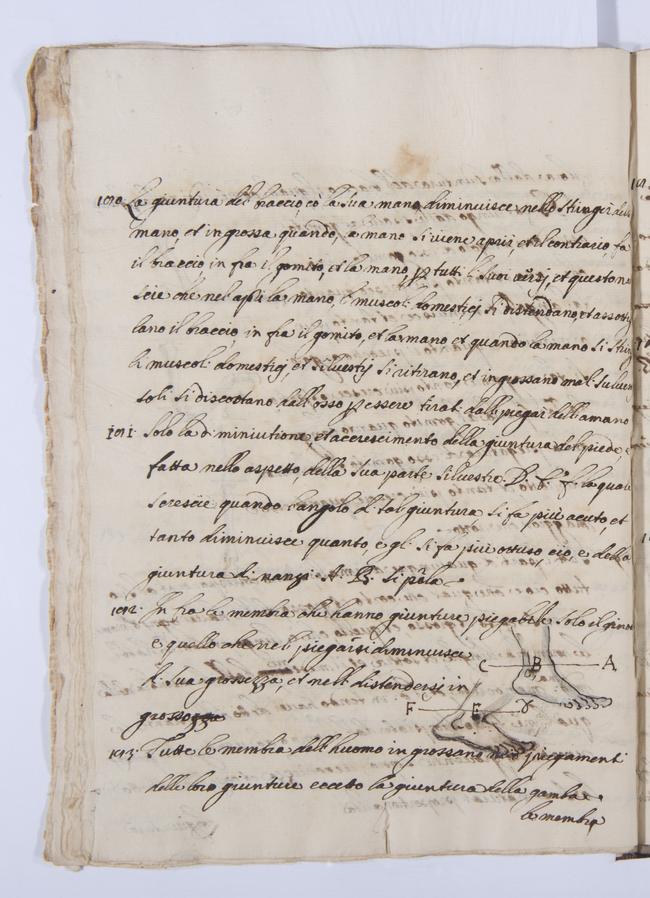 1010 La giuntura del braccio, cō la sua mano, diminuisce nello stringer della
mano, et ingrossa quando, la mano si viene aprir, et il contrario fa
il braccio, in fra il gomito, et la mano, ꝑ tutti li suoi versi, et questo na
scie che nel aprir la mano, li muscoli domestici si distendano, et assoti
liano il braccio, in fra il gomito, et la mano et quando la mano si string
li muscoli domestici, et silvestri si ritirano, et ingrossano
soli si discostano dall'osso ꝑ essere tirati dalle piegar della mano
1011 Solo la diminiutione, et accrescimento della giuntura del piede, è
fatta nello aspetto, della sua parte silvestre. D. E. F. la quale
crescie quando l'angolo di tal giuntura si fa piu acuto, et
tanto diminuisce quanto, egli si fa piu ottuso, cio, e della
giuntura di nanzi A. B. si pārla
1012 In fra le membra che hanno giunture piegabbile solo il ginoc
e quello che nel piegarsi diminuisce
di sua grossezza, et nell distendersi in
grossa
C B A
F E D
1013 Tutte le membra dell'huomo ingrossano nelli piegamenti
delle loro giunture eccetto la giuntura della gamba.
le membra